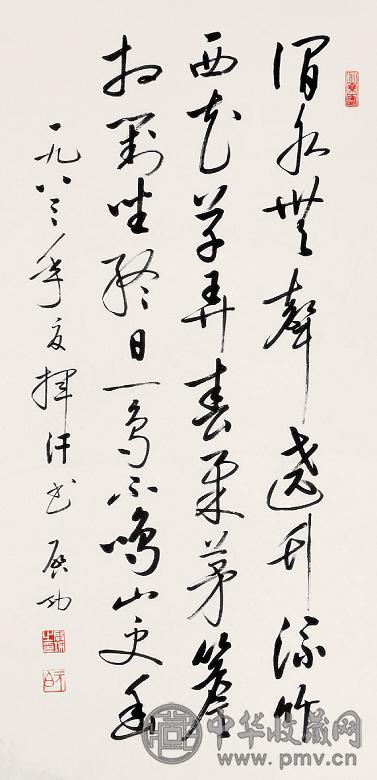 澗水無聲遶竹流竹
西花草弄春柔茅簷
相對坐終日一鳥不鳴山更幽
一九八三年夏揮汗書 啟功
中华收藏网
www.pmv.cn